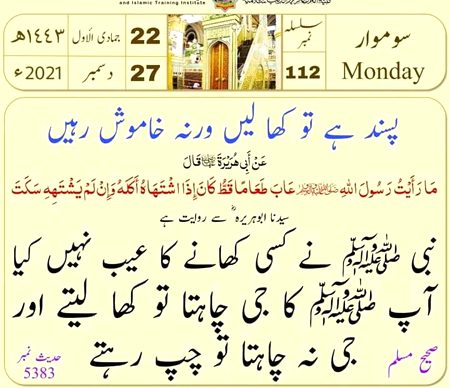 and Islamic Training Institute
سوموار
Monday
سلسلہ نمبر
112
22 جمادی الاول ۱۴۴۳ھ
27 دسمبر 2021ء
پسند ہے تو کھا لیں ورنہ خاموش رہیں
عَنْ أَبِي هُرَيْرَةَ ؓ قَالَ
مَا رَأَيْتُ رَسُولَ اللهِ ﷺ عَابَ طَعَامًا قَطُّ كَانَ إِذَا اشْتَهَاهُ أَكَلَهُ وَإِنْ لَمْ يَشْتَهِهِ سَكَتَ
سیدنا ابوہریرہ ؓ سے روایت ہے
نبی ﷺ نے کسی کھانے کا عیب نہیں کیا
آپ ﷺ کا جی چاہتا تو کھا لیتے اور
جی نہ چاہتا تو چپ رہتے
صحیح مسلم
حدیث نمبر
5383